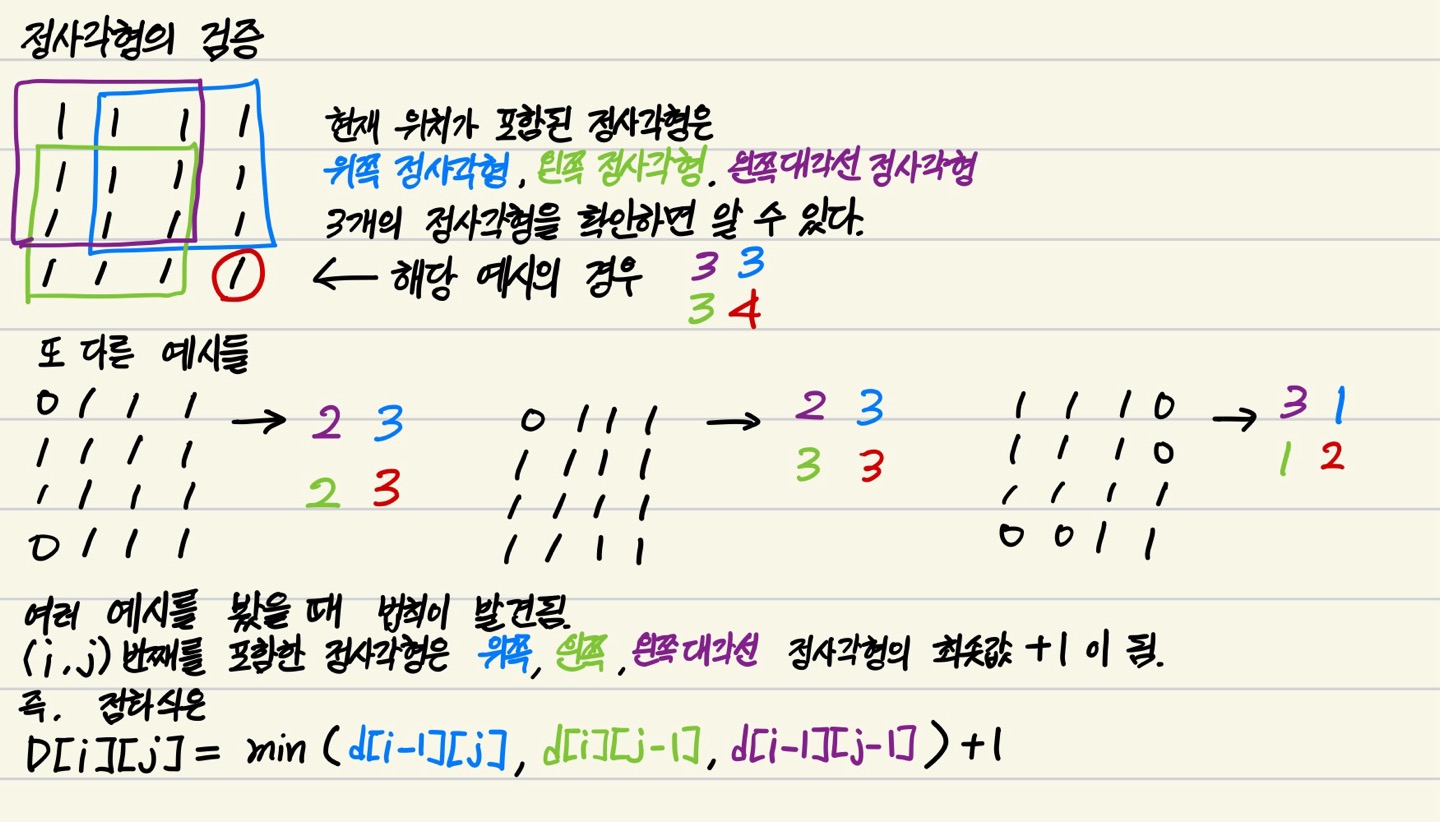 정사각형의 검증
1 1 1 1
1 1 1 1
1 1 1 1
1 1 1 1
현재 위치가 포함된 정사각형은
위쪽 정사각형, 왼쪽 정사각형, 왼쪽대각선 정사각형
3개의 정사각형을 확인하면 알 수 있다.
← 해당 예시의 경우
3 3
3 4
또 다른 예시들
0 1 1 1 → 2 3
1 1 1 1
1 1 1 1 2 3
0 1 1 1
0 1 1 1 → 2 3
1 1 1 1 3 3
1 1 1 1
1 1 1 1
1 1 1 0 → 3 1
1 1 1 0 1 2
1 1 1 1
0 0 1 1
여러 예시를 봤을 때 법칙이 발견됨.
(i,j)번째를 포함한 정사각형은 위쪽, 왼쪽, 왼쪽대각선 정사각형의 최솟값 +1 이 됨.
즉, 점화식은
D[i][j] = min (d[i-1][j], d[i][j-1], d[i-1][j-1]) +1